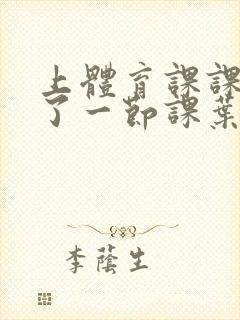 上體育課課
了一節課葉
李蔭生